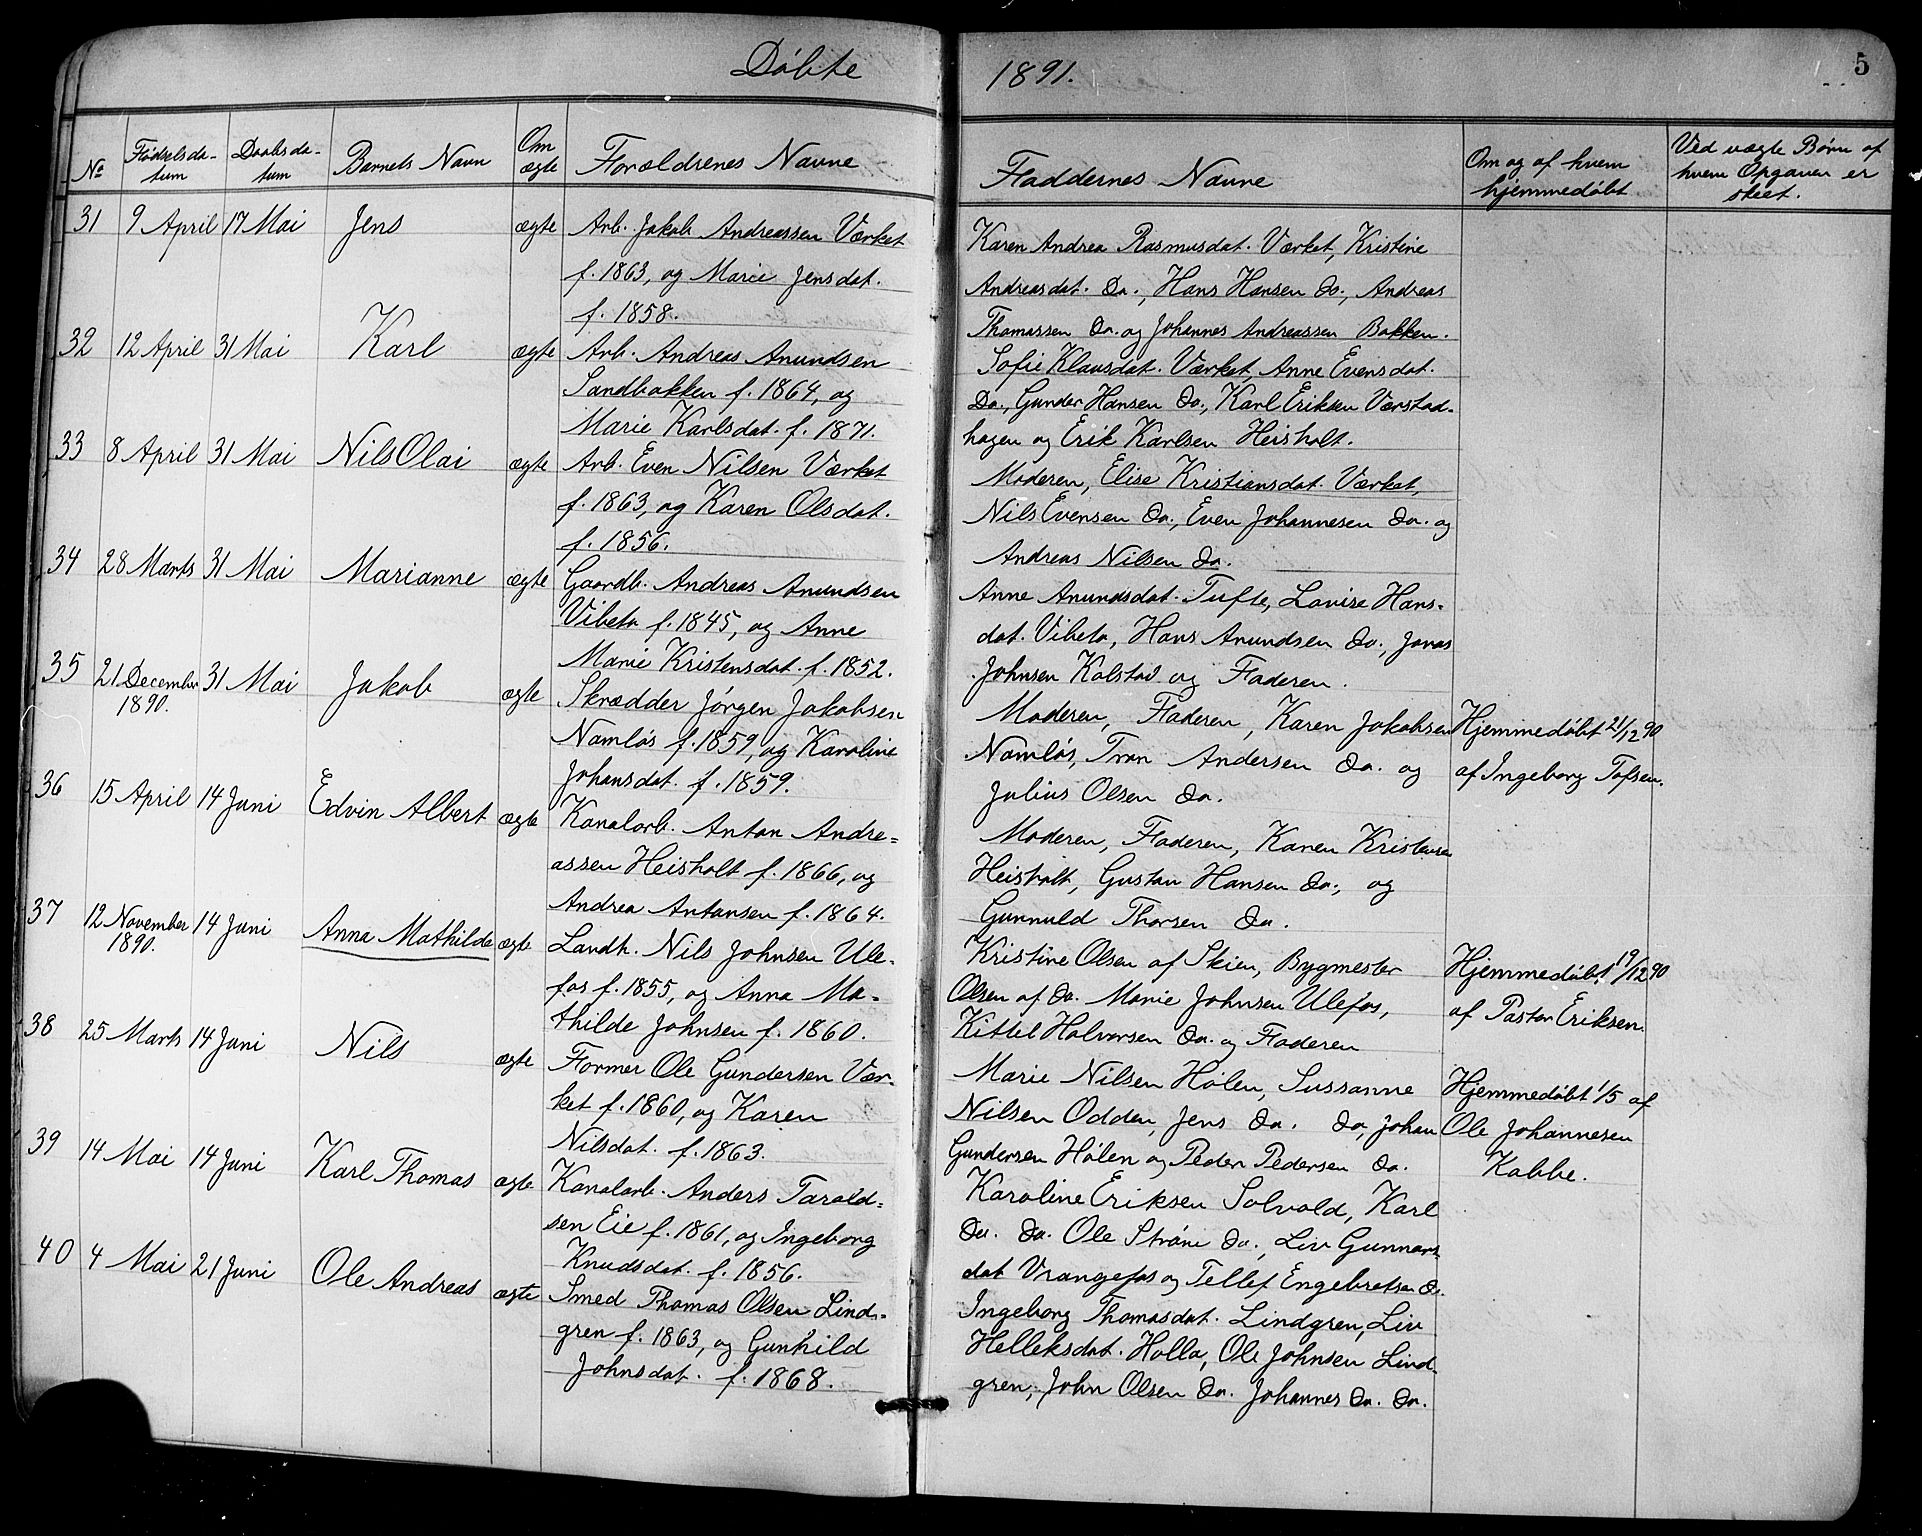 Døbte 1891. 5
No Fødselsda- Daabsda- Barnets Navn Om Forældrenes Navne Faddernes Navne Om og af hvem Ved uægte Børn af
tum tum ægte hjemmedøbt hvem Opgaven er
skeet.
31 9 April 17 Mai Jens ægte Arb. Jakob Andreassen Værket
f. 1863, og Marie Jensdat.
f. 1858.
Karen Andrea Rasmusdat. Værket, Kristine
Andreasdat. Do., Hans Hansen Do., Andreas
Thomassen Do. og Johannes Andreassen Bakken.
32 12 April 31 Mai Karl ægte Arb. Andreas Anundsen
Sandbakken f. 1864, og
Marie Karlsdat. f. 1871.
Sofie Klausdat. Værket, Anne Evensdat.
Do., Gunder Hansen Do., Karl Eriksen Værstad-
hagen og Erik Karlsen Heisholt.
33 8 April 31 Mai Nils Olai ægte Arb. Even Nilsen Værket
f. 1863, og Karen Olsdat.
f. 1856.
Moderen, Elise Kristiansdat. Værket,
Nils Evensen Do., Even Johannesen Do. og
Andreas Nilsen Do.
34 28 Marts 31 Mai Marianne ægte Gaardb. Andreas Anundsen
Vibeto f. 1845, og Anne
Marie Kristensdat. f. 1852.
Anne Anundsdat. Tufte, Lovise Hans-
dat. Vibeto, Hans Anundsen Do., Jonas
Johnsen Kolstad og Faderen.
35 21 December 31 Mai Jakob ægte Skrædder Jørgen Jakobsen
1890.
Namløs f. 1859, og Karoline
Johansdat. f. 1859.
Moderen, Faderen, Karen Jakobsen
Namløs, Tron Andersen Do. og
Julius Olsen Do.
Hjemmedøbt 21/12 90
af Ingeborg Tofsen.
36 15 April 14 Juni Edvin Albert ægte Kanalarb. Anton Andre-
assen Heisholt f. 1866, og
Andrea Antonsen f. 1864.
Moderen, Faderen, Karen Kristensen
Heisholt, Gustav Hansen Do., og
Gunnuld Thorsen Do.
37 12 November 14 Juni Anna Mathilde ægte Landh. Nils Johnsen Ule-
1890.
fos f. 1855, og Anna Ma-
thilde Johnsen f. 1860.
Kristine Olsen af Skien, Bygmester
Olsen af Do. Marie Johnsen Ulefos,
Kittel Halvorsen Do. og Faderen
Hjemmedøbt 19/12 90
af Pastor Eriksen.
38 25 Marts 14 Juni Nils ægte Former Ole Gundersen Vær-
ket f. 1860, og Karen
Nilsdat. f. 1863.
Marie Nilsen Holen, Sussanne
Nilsen Odden, Jens Do. Do, Johan
Gundersen Holen og Peder Pedersen Do.
Hjemmedøbt 1/5 af
Ole Johannesen
Kabbe.
39 14 Mai 14 Juni Karl Thomas ægte Kanalarb. Anders Tarald-
sen Eie f. 1861, og Ingeborg
Knudsdat. f. 1856.
Karoline Eriksen Solvold, Karl
Do. Do. Ole Strøm Do., Liv Gunnars-
dat Vrangefos og Tellef Engebretsen Do.
40 4 Mai 21 Juni Ole Andreas ægte Smed Thomas Olsen Lind-
gren f. 1863, og Gunhild
Johnsdat. f. 1868.
Ingeborg Thomasdat. Lindgren, Liv
Helleksdat. Holla, Ole Johnsen Lind-
gren, John Olsen Do. Johannes Do. Do.